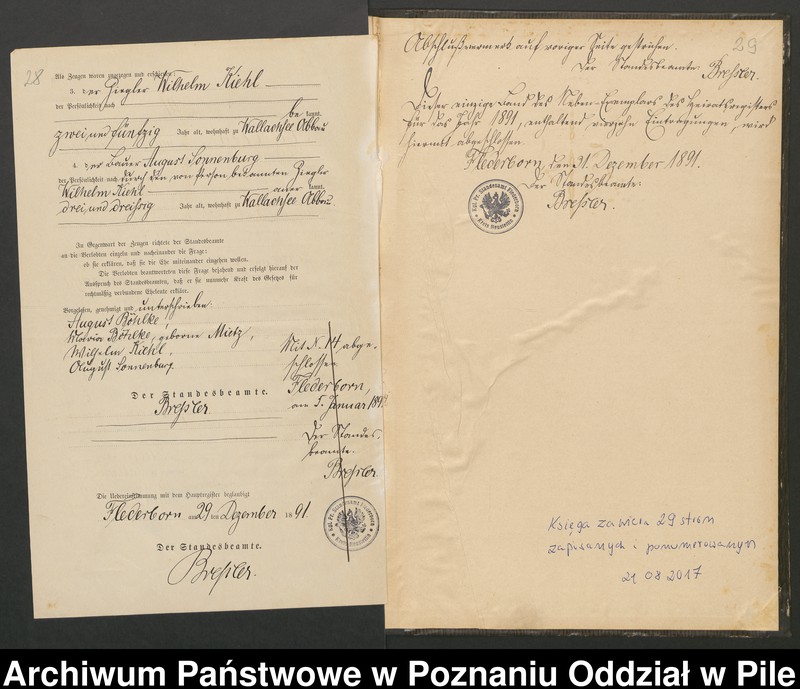 28
Als Zeugen waren zugezogen und erschienen:
3. der Ziegler Wilhelm Kiehl
der Persönlichkeit nach
be kannt,
zwei und fünfzig Jahr alt, wohnhaft zu Wallachsee Abbau
4. der Bauer August Sonnenburg
der Persönlichkeit nach durch den von Person bekannten Ziegler
Wilhelm Kiehl aner kannt,
drei und dreissig Jahr alt, wohnhaft zu Wallachsee Abbau.
In Gegenwart der Zeugen richtete der Standesbeamte
an die Verlobten einzeln und nacheinander die Frage:
ob sie erklären, daß sie die Ehe miteinander eingehen wollen.
Die Verlobten beantworteten diese Frage bejahend und erfolgt hierauf der
Ausspruch des Standesbeamten, daß er sie nunmehr Kraft des Gesetzes für
rechtmäßig verbundene Eheleute erkläre.
Vorgelesen, genehmigt und unterschrieben:
August Böhlke,
Maria Böhlke, geborne Mietz,
Wilhelm Kiehl,
August Sonnenburg.
Der Standesbeamte.
Breßler
Mit N. 14 abge-
schlossen
Flederborn,
am 5. Januar 189
Der Standes-
beamte.
Breßler
Die Uebereinstimmung mit dem Hauptregister beglaubigt
Flederborn am 29 ten Dezember 1891.
Der Standesbeamte.
Breßler.
Kgl. Pr. Standesamt Flederborn
Kreis Neustettin
29
Abschlußvermerk auf voriger Seite gestrichen.
Der Standesbeamte Breßler.
Dieser einzige Band des Neben-Exemplars des Heiratsregisters
für das Jahr 1891, enthaltend vierzehn Eintragungen, wird
hiermit abgeschlossen.
Flederborn, den 31. Dezember 1891.
Der Standesbeamte:
Breßler.
Kgl. Pr. Standesamt Flederborn
Kreis Neustettin
Księga zawiera 29 stron
zapisanych i ponumerowanych
21 08 2017
Archiwum Państwowe w Poznaniu Oddział w Pile